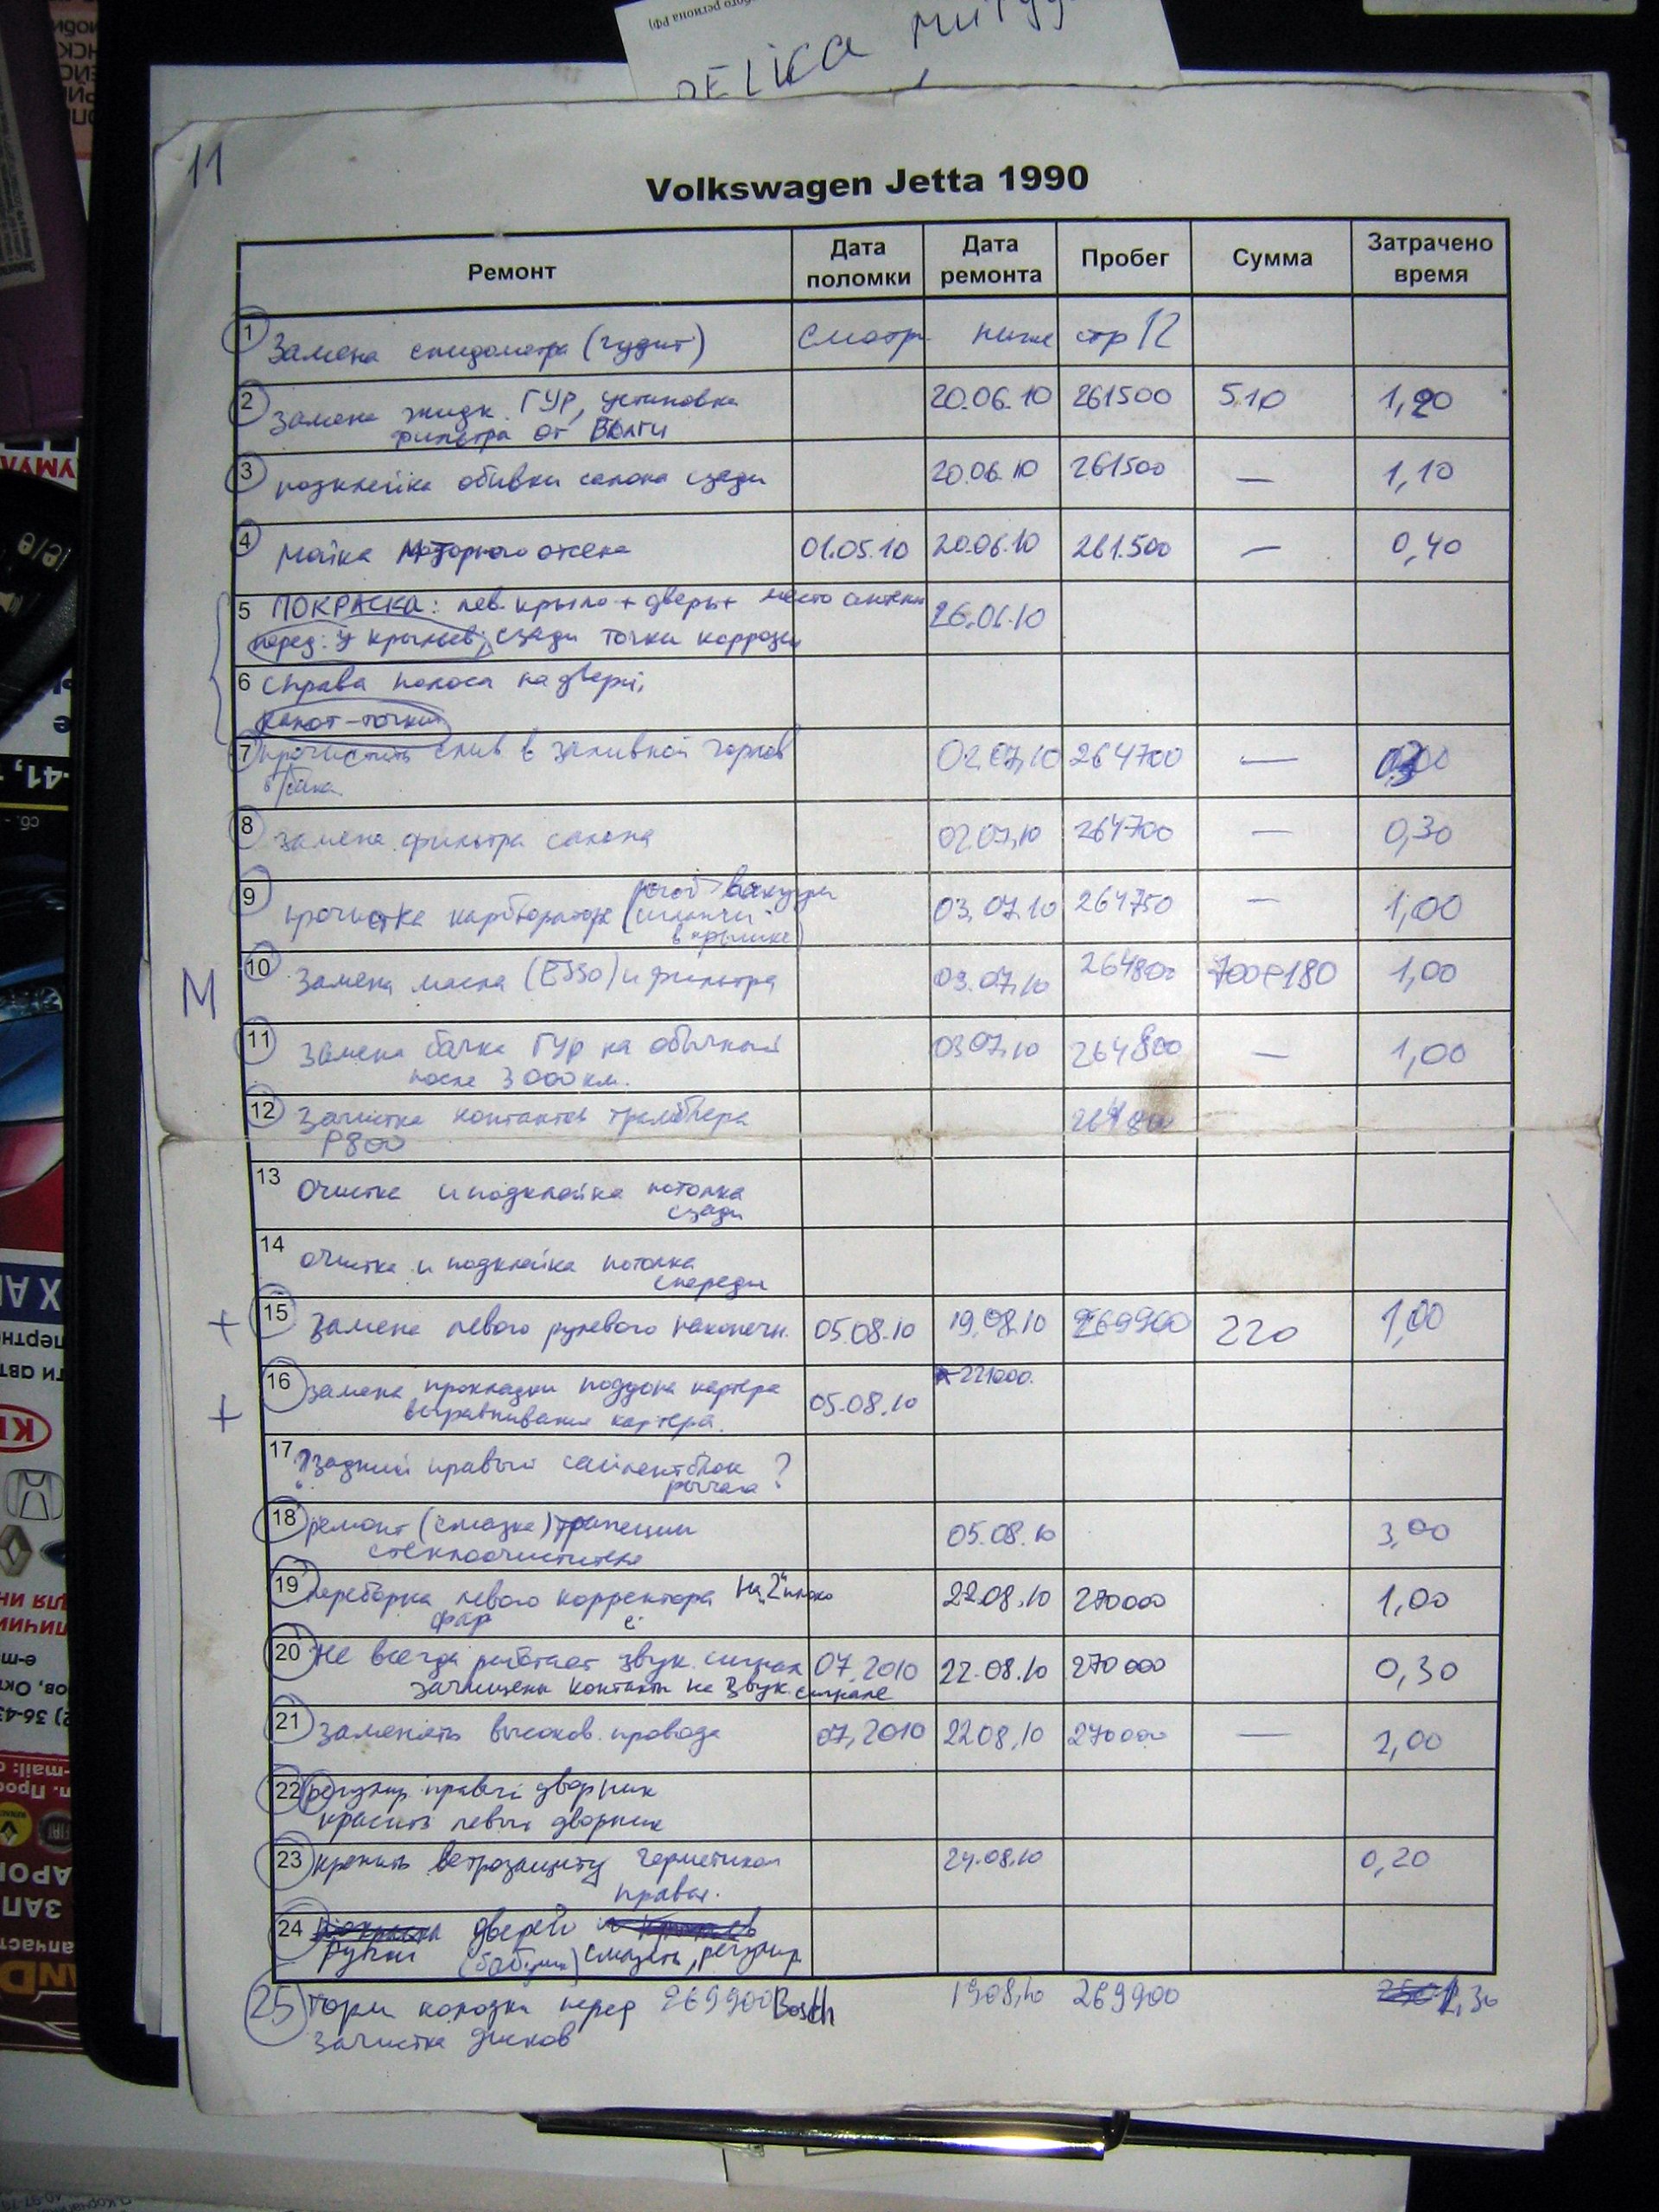 DELICA
11
Volkswagen Jetta 1990
Ремонт
Дата поломки
Дата ремонта
Пробег
Сумма
Затрачено время
1 Замена спидометра (гудит) смотр. ниже стр 12 —
2 Замена жидк. ГУР, установка 20.06.10 261500 510 1,20
фильтра от Волги
3 подклейка обивки салона сзади 20.06.10 261500 — 1,10
4 Мойка моторного отсека 01.05.10 20.06.10 261.500 — 0,40
5 ПОКРАСКА: лев. крыло + дверь + место антены 26.06.10
перед: у крыльев; сзади точки коррозии
6 справа полоса на двери,
капот-точки
7 прочистить слив в заливной горлов 02.07.10 264700 —
б/бака
8 замена фильтра салона 02.07.10 264700 — 0,30
9 прочистка карбюратора (шланчи 03.07.10 264750 — 1,00
в крышке)
M
10 Замена масла (ESSO) и фильтра 03.07.10 264800 700+180 1,00
11 Замена бачка ГУР на обычный 03.07.10 264800 — 1,00
после 3000 км.
12 Зачистка контактов трамблера 264800
P800
13 Очистка и подклейка потолка
сзади
14 очистка и подклейка потолка
спереди
+ 15 Замена левого рулевого наконечн. 05.08.10 19.08.10 269900 220 1,00
+ 16 замена прокладки поддона картера 05.08.10 221000.
выравнивание картера.
17 ? задний правый сайлентблок ?
рычага
18 ремонт (смазка) трапеции 05.08.10 3,00
стеклоочистителя
19 переборка левого корректора На "2" плохо 22.08.10 270000 1,00
фар
20 Не всегда работает звук. сигнал 07,2010 22.08.10 270000 0,30
зачищены контакты на звук. сигнале
21 заменить высоков. провода 07,2010 22.08.10 270000 — 2,00
22 регулир правый дворник
красить левый дворник
23 крепить ветрозащиту герметиком 24.08.10 0,20
правая.
24 дверей
Ручки смазать, регулир
25 Торм колодки перед 269900 Bosch 19.08.10 269900 1,30
зачистка дисков